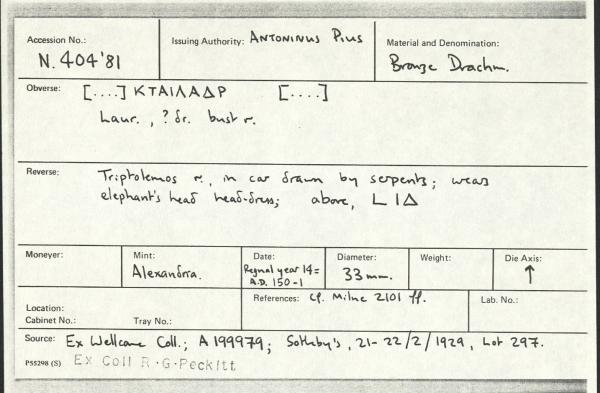 Accession No.: Issuing Authority: ANTONINUS PIUS Material and Denomination:
N. 404'81 Bronze Drachm.
Obverse: [....] ΚΤΑΙΛΑΔΡ [....]
Laur., ? dr. bust r.
Reverse: Triptolemos r., in car drawn by serpents; wears
elephant's head head-dress; above, L ΙΔ
Moneyer: Mint: Date: Diameter: Weight: Die Axis:
Alexandria. Regnal year 14 = 33 mm. ↑
A.D. 150-1
References: Cf. Milne 2101 ff. Lab. No.:
Location:
Cabinet No.: Tray No.:
Source: Ex Wellcome Coll.; A 199979; Sotheby's, 21-22/2/1929, Lot 297.
P55298 (S) Ex Coll R.G.Peckitt